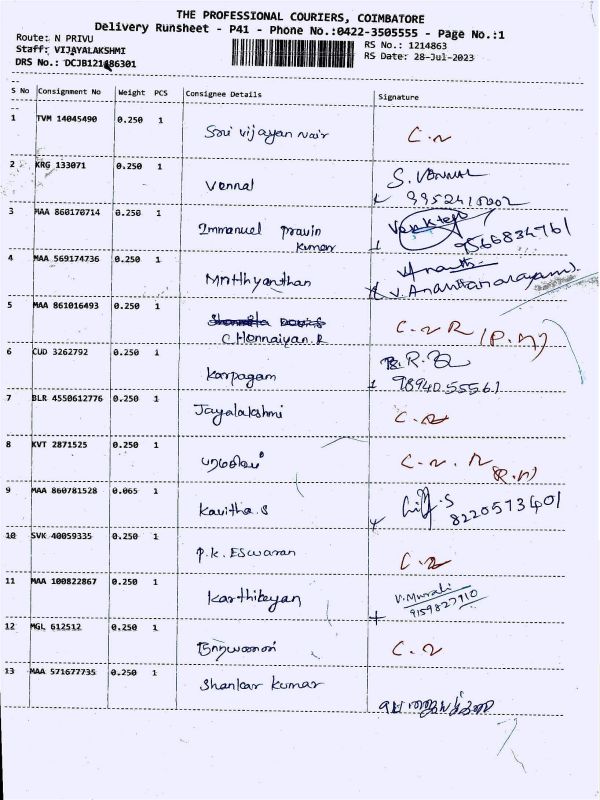 THE PROFESSIONAL COURIERS, COIMBATORE
Delivery Runsheet - P41 - Phone No.:0422-3505555 - Page No.:1
Route: N PRIVU RS No.: 1214863
Staff: VIJAYALAKSHMI RS Date: 28-Jul-2023
DRS No.: DCJB121486301
S No Consignment No Weight PCS Consignee Details Signature
1 TVM 14045490 0.250 1
Sri Vijayan Nair C.N
2 KRG 133071 0.250 1
Vennal S. Vennal
9952410202
3 MAA 860170714 0.250 1
Immanuel Pravin
Kumar 9566834761
4 MAA 569174736 0.250 1
Ananth
V. Ananthanarayanan
5 MAA 861016493 0.250 1
Chennaiyan.R C.N R (P.N)
6 CUD 3262792 0.250 1
Karpagam 9894055561
7 BLR 4550612776 0.250 1
Jayalakshmi C.N
8 KVT 2871525 0.250 1
C.N.R
(R.N)
9 MAA 860781528 0.065 1
Kavitha.S 8220573401
10 SVK 40059335 0.250 1
P.K. Eswaran C.N
11 MAA 100822867 0.250 1
Karthikeyan V.Murali
9159827910
12 MGL 612512 0.250 1
C.N
13 MAA 571677735 0.250 1
Shankar Kumar